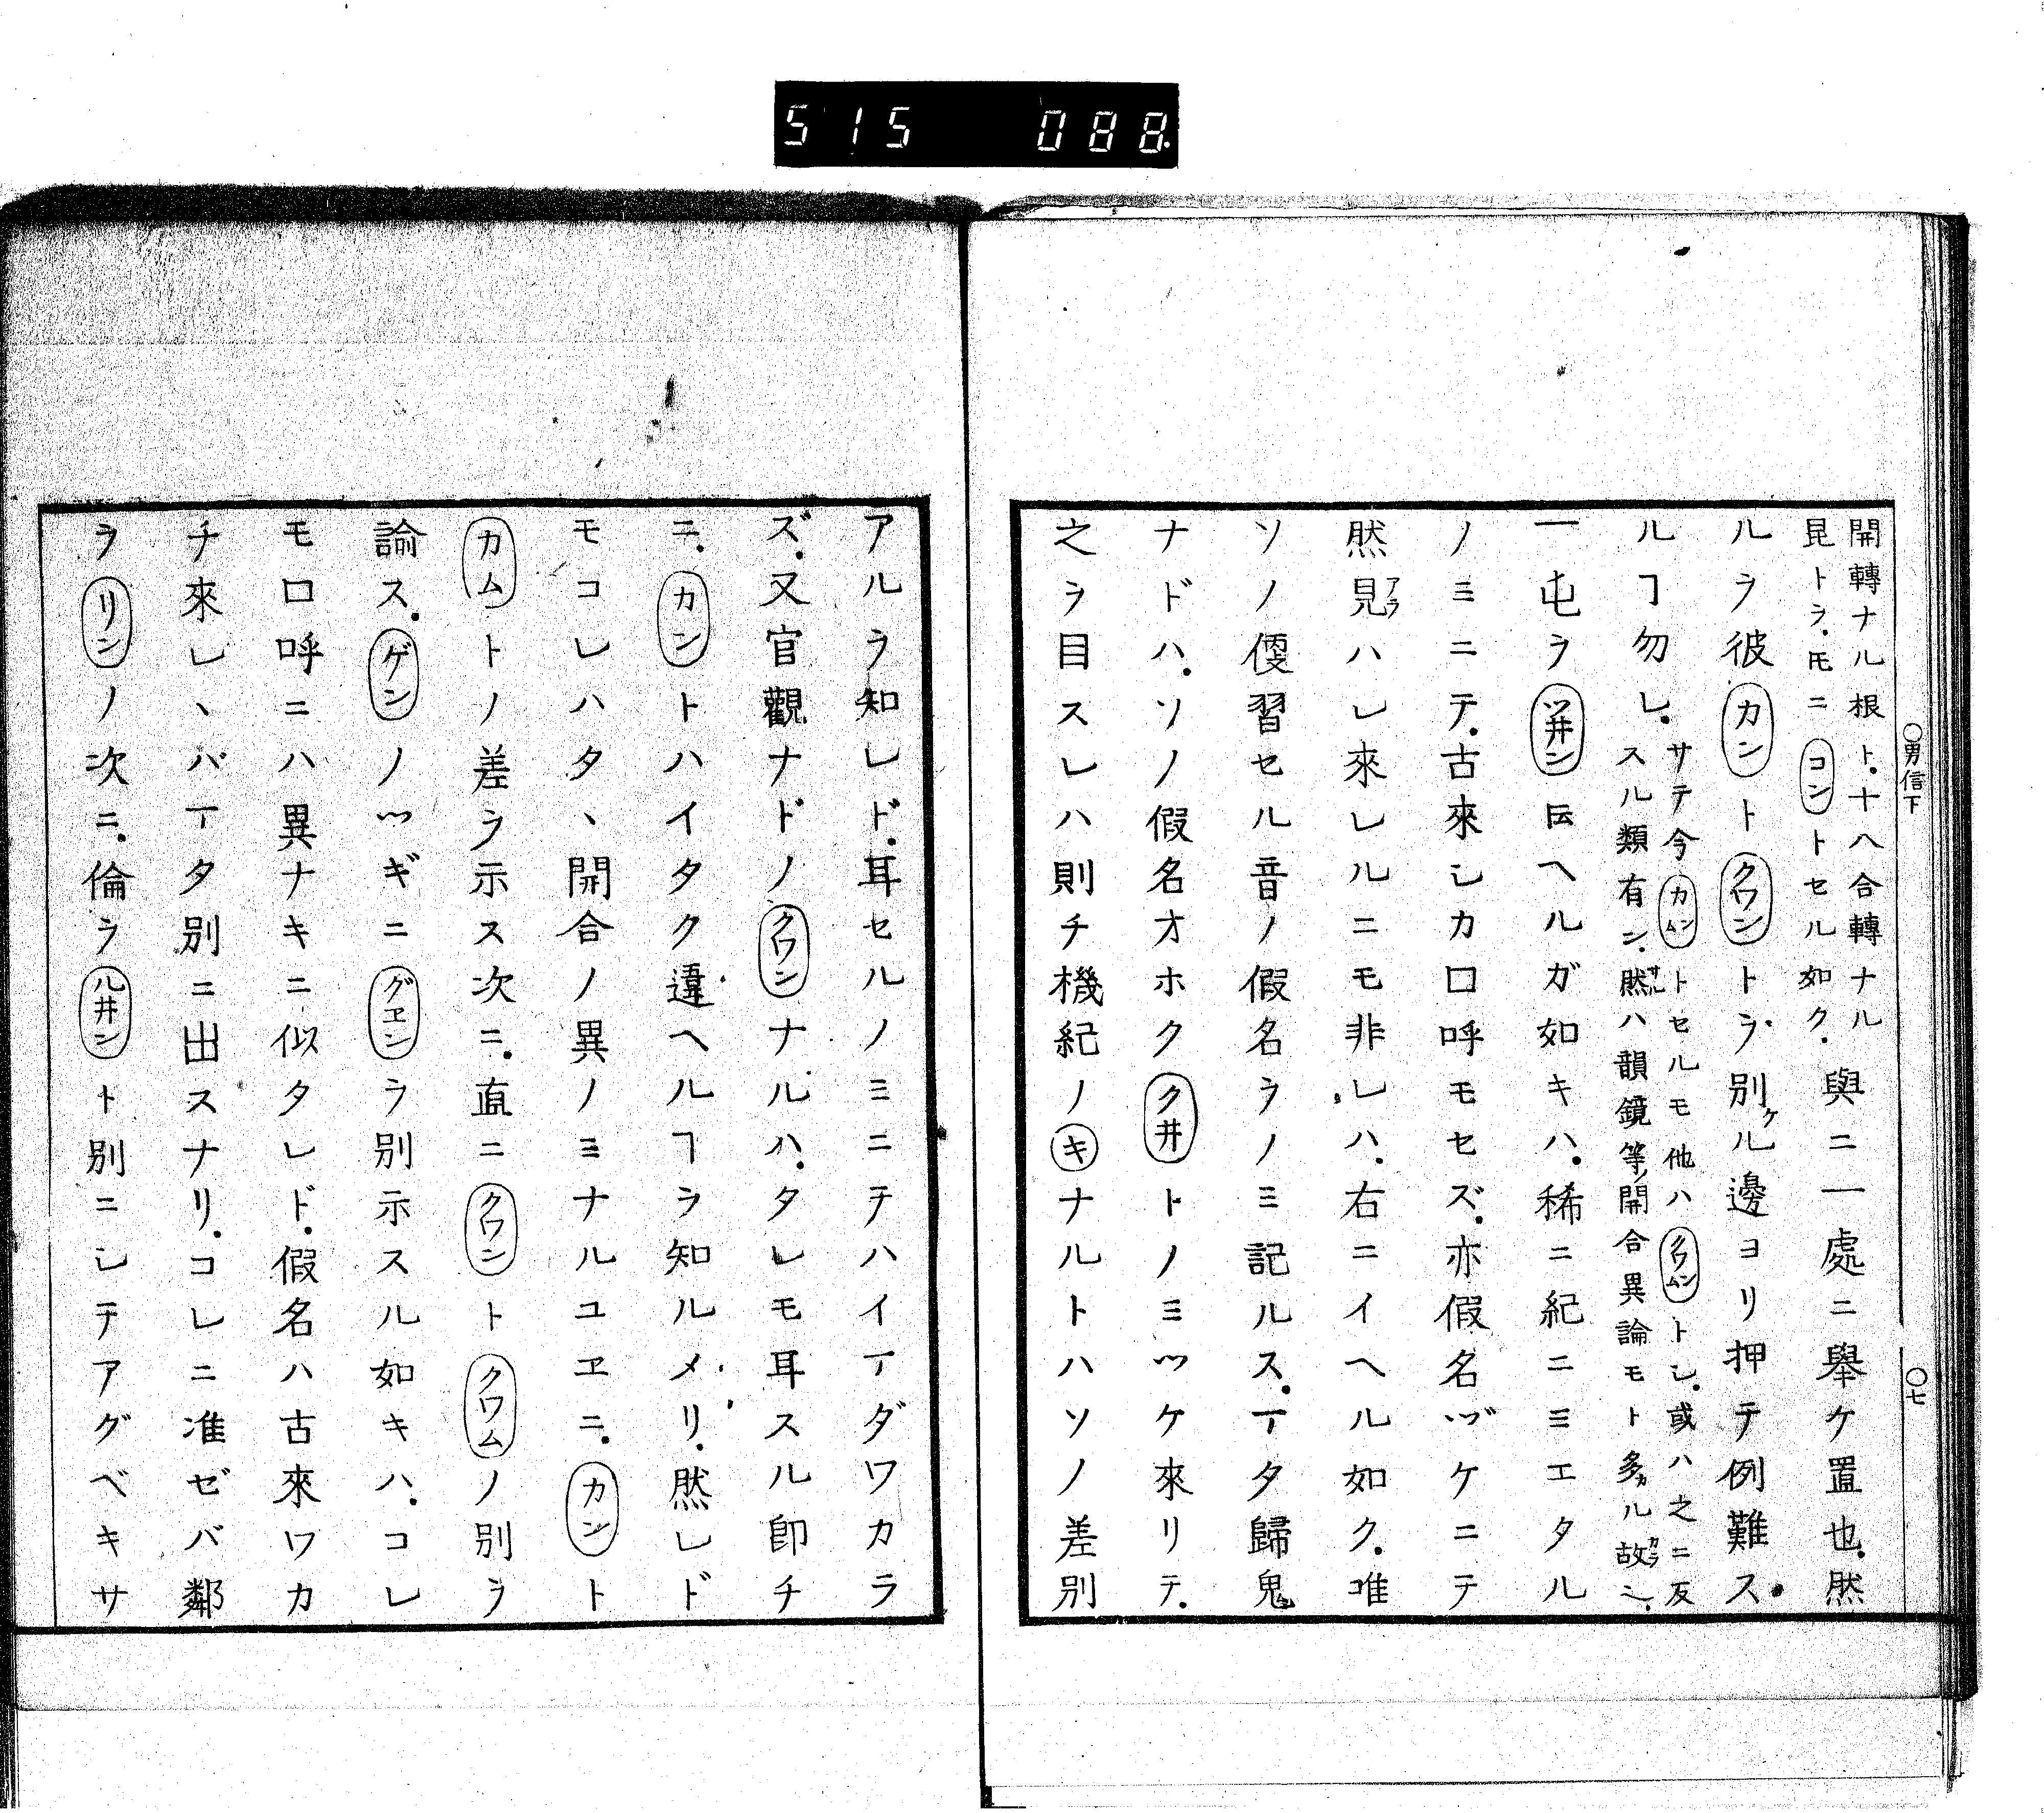 515 088
○男信下
○七
開轉ナル根ト.十八合轉ナル
昆トヲ.㞐ニコントセル如ク.
與ニ一處ニ舉ケ置也.然
ルヲ彼カントクワントヲ.別ケル邊ヨリ押テ例難ス.
ルヿ勿レ.
サテ今カンムトセルモ他ハクワンムトシ.或ハ之ニ反
スル類有ン.然サレハ韻鏡等ノ開合異論モト多カル故カラニ.
一屯ヲツ井ン𪜈ヘルガ如キハ.稀ニ紀ニミエタル
ノミニテ.古來シカ口呼モセズ.亦假名ヅケニテ
然見アラハレ來レルニモ非レハ.右ニイヘル如ク.唯
ソノ儘習セル音ノ假名ヲノミ記ルス.マタ歸鬼
ナドハ.ソノ假名オホクク井トノミツケ來リテ.
之ヲ目スレハ則チ機紀ノキナルトハソノ差別
アルヲ知レド.耳セルノミニテハイマダワカラ
ズ.又官觀ナドノクワンナルハ.タレモ耳スル卽チ
ニ.カントハイタク違ヘルヿヲ知ルメリ.然レド
モコレハタヽ開合ノ異ノミナルユヱニ.カント
カムトノ差ヲ示ス次ニ.直ニクワントクワムノ別ヲ
論ス.ゲンノツギニグヱンヲ別示スル如キハ.コレ
モ口呼ニハ異ナキニ似タレド.假名ハ古來ワカ
チ來レヽバマタ別ニ出スナリ.コレニ准ゼバ鄰
ヲリンノ次ニ.倫ヲル井ント別ニシテアグベキサ